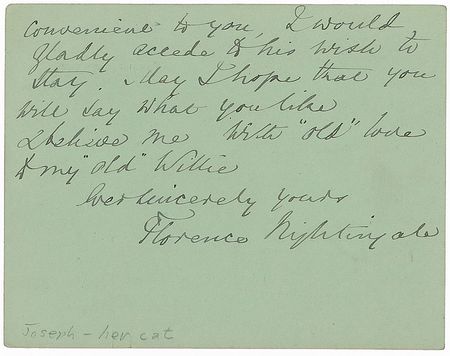 convenient to you, I would
gladly accede to his wish to
stay. May I hope that you
will say what you like
& believe me With "old" love
to my "old" Willie
Ever sincerely yours
Florence Nightingale
Joseph - her cat